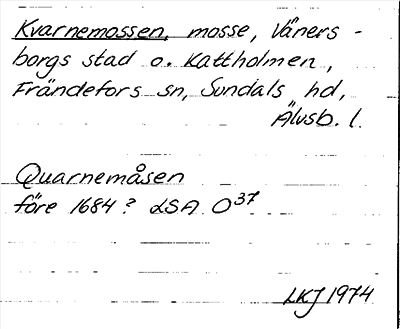 Kvarnemossen, mosse, Väners-
borgs stad o. Kattholmen,
Frändefors sn, Sundals hd,
Älvsb. l.
Quarnemåsen
före 1684? LSA O37
LKJ 1974